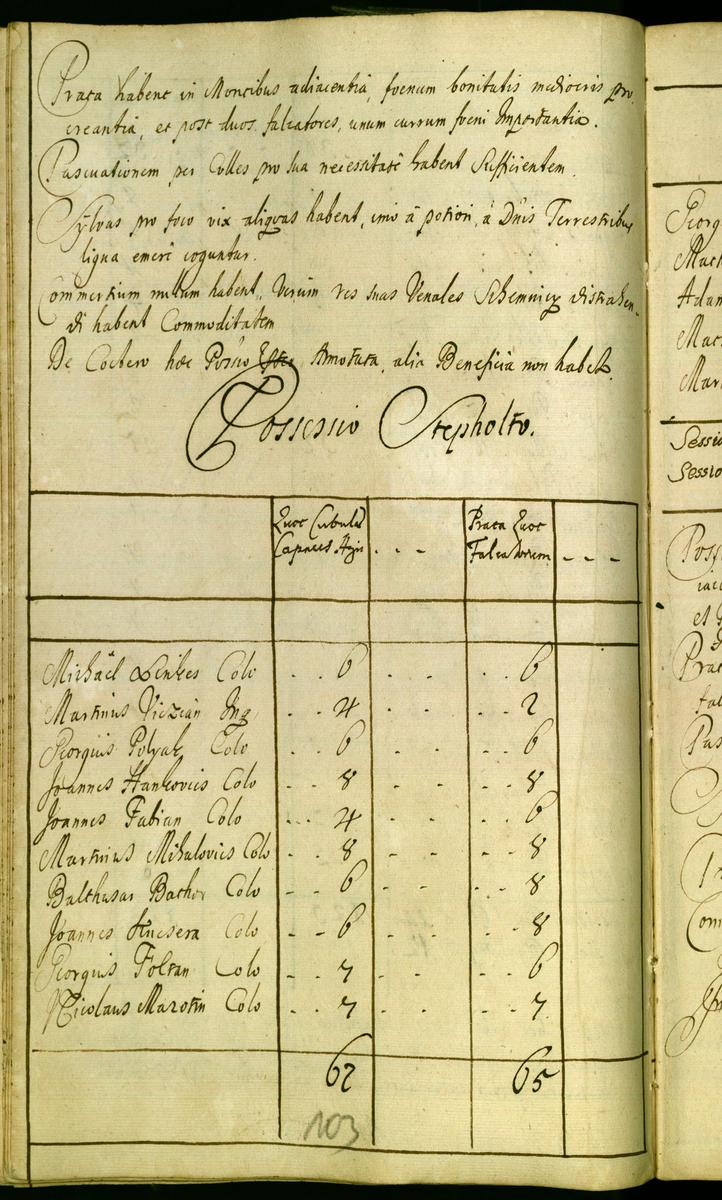 Prata habent in Montibus adiacentia, foenum bonitatis mediocris pro
creantia, et post duos falcatores, unum currum foeni Importantia.
Pascuationem per Colles pro sua necessitate habent Sufficientem
Sylvas pro foco vix aliquas habent, imo à potiori, à Dnis Terrestribus
ligna emere coguntur.
Commertium nullum habent, Verum res suas Venales Schemnicz distrahen-
di habent Commoditatem
De Coetero hoc Possio Amotata, alia Beneficia non habet.
Possessio Stepholto.
Quot Cubulos
Capaces Agri . . -
Prata Quot
Falcatorum - - -
Michaël Colo . . 6 . . . . 6
Martinus Viczian Inq . . 4 . . . . 2
Georgius Polyak Colo . . 6 . . . . 6
Joannes Hankovics Colo . . 8 - - . . 8
Joannes Fabian Colo . . 4 - - . . 6
Martinus Mihalovics Colo . . 8 - - - - 8
Balthasar Bathor Colo - - 6 - - - - 8
Joannes Colo - - 6 - - - - 8
Georgius Foltan Colo - - 7 - - - - 6
Nicolaus Marotin Colo - - 7 - - - - 7
62 65
103
Georg
Math
Adam
Mat
Mar
Sessio
Sessio
Poss
iac
et
Pra
fal
Pas
Com